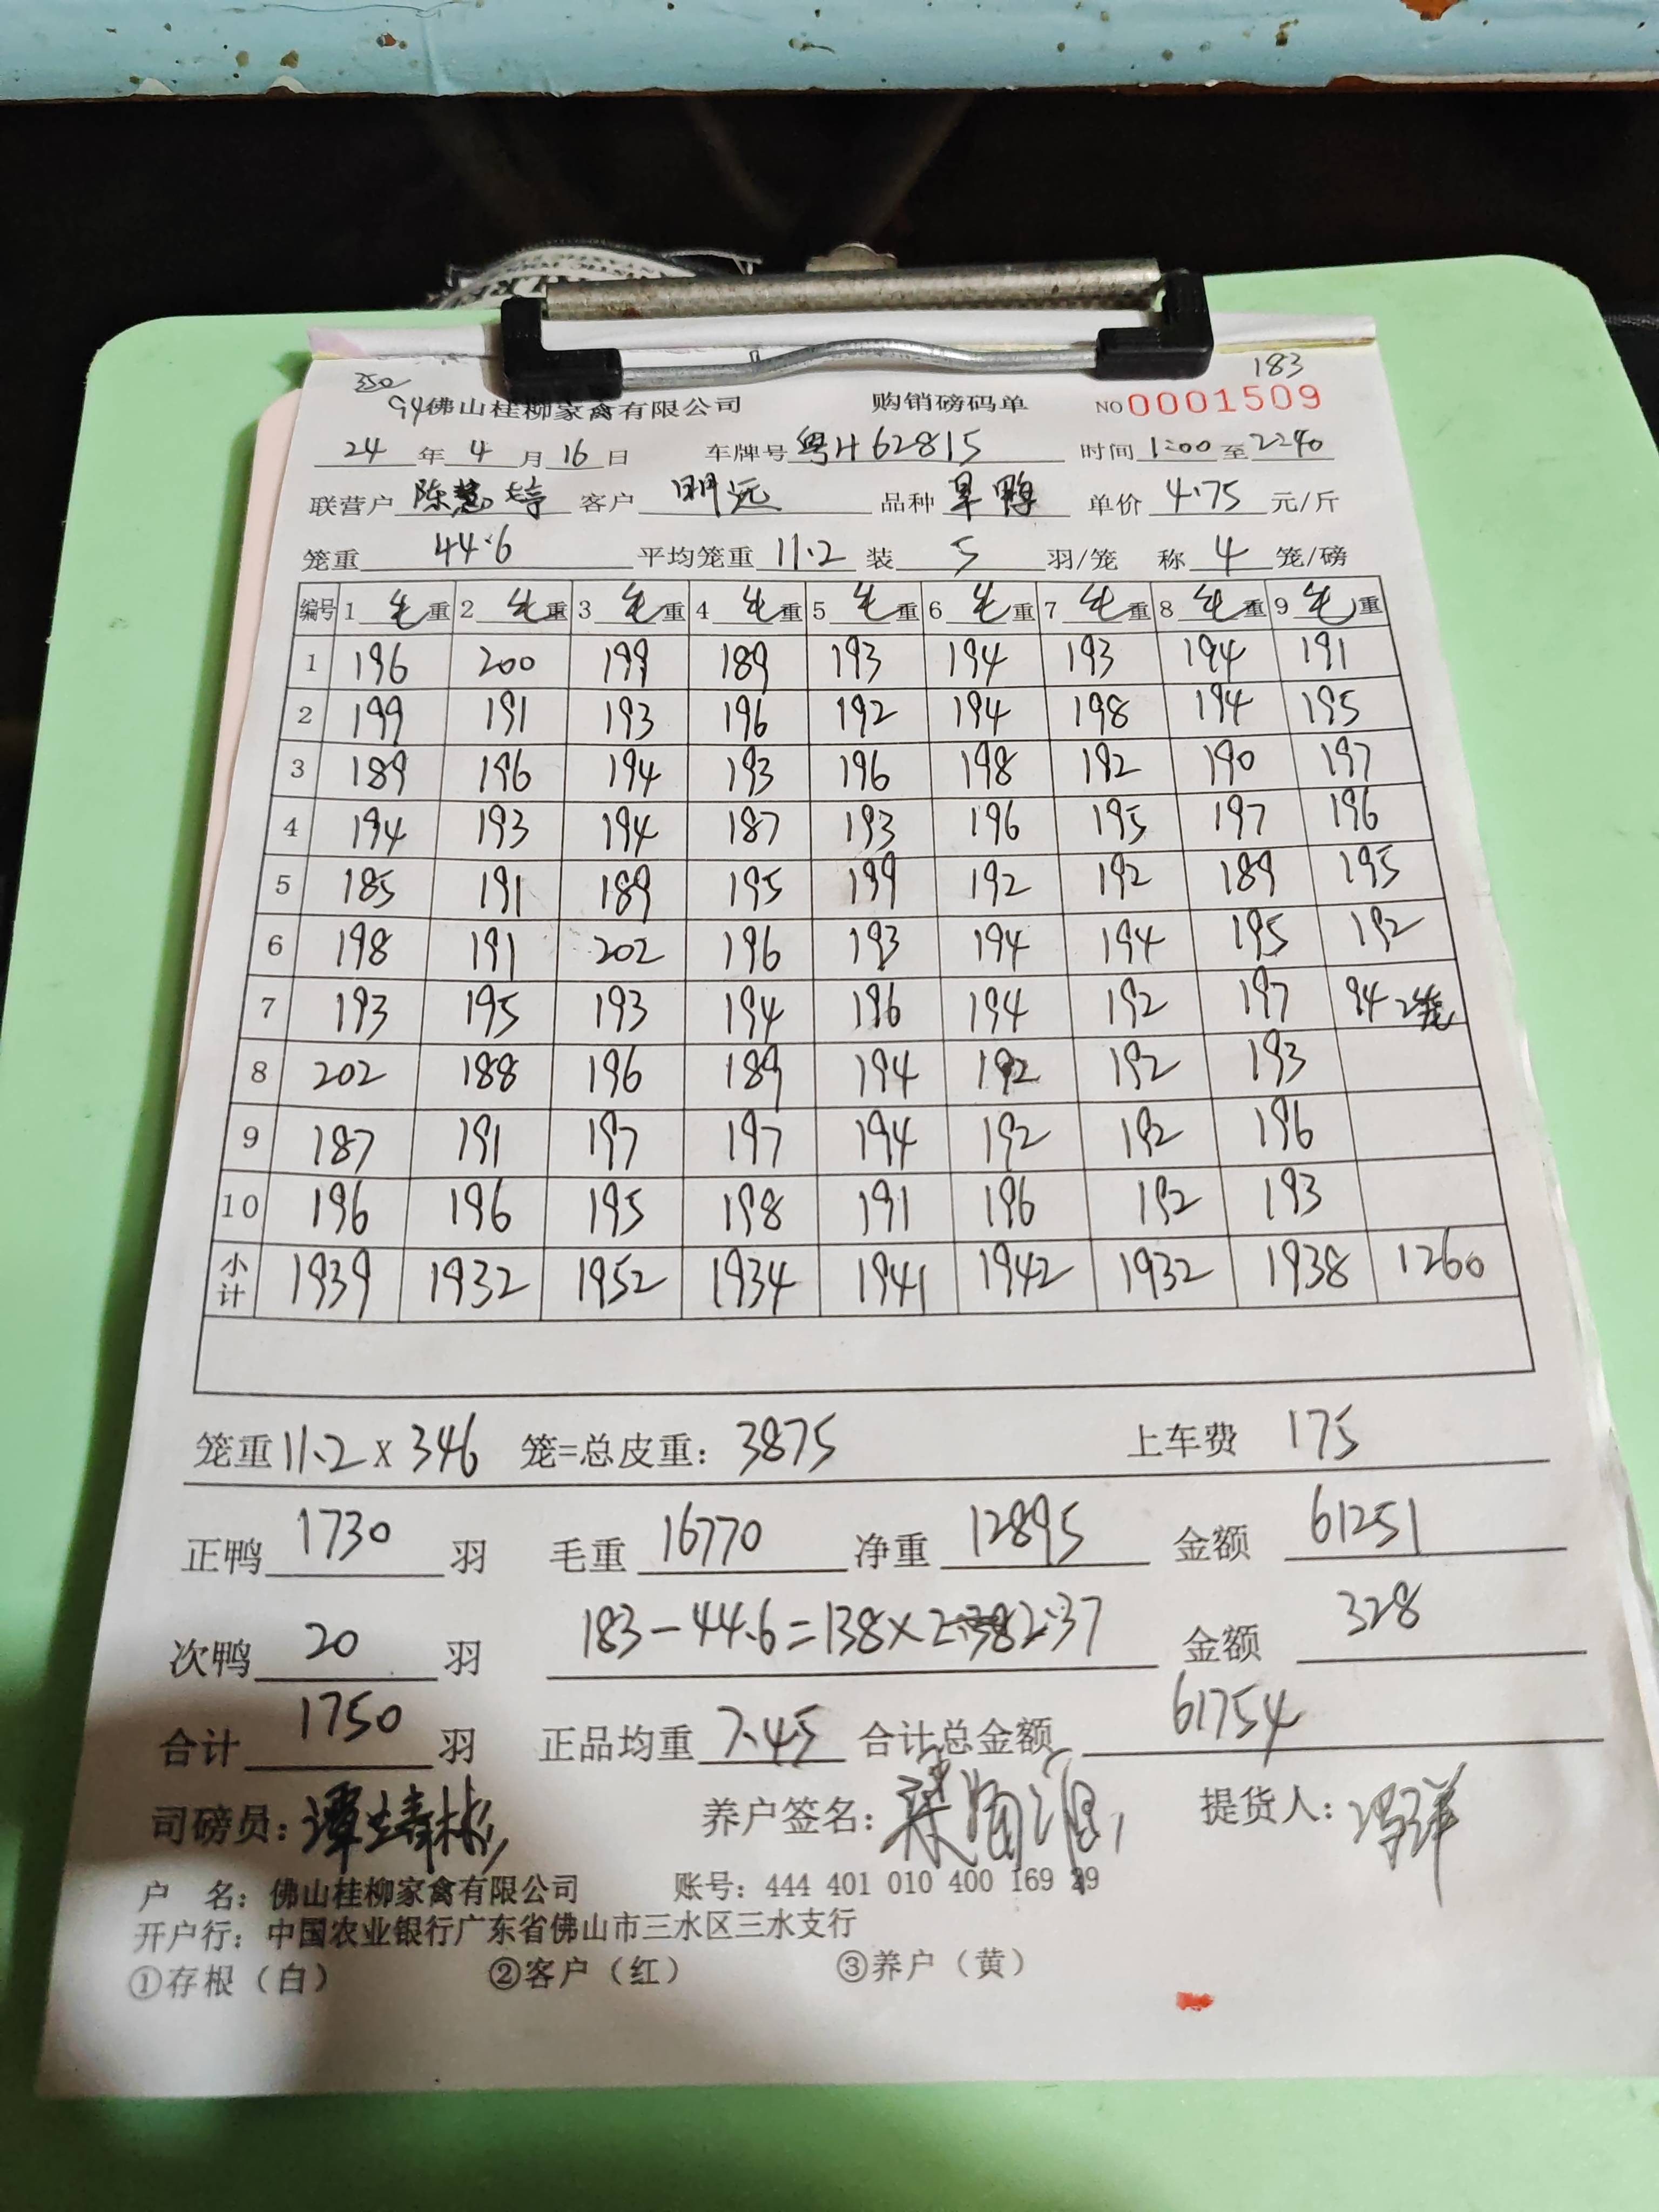 350 183
G4佛山桂柳家禽有限公司 购销磅码单 NO 0001509
24 年 4 月 16 日 车牌号 粤H62815 时间 1:00 至 2240
联营户 陈慧婷 客户 明远 品种 旱鸭 单价 4.75 元/斤
笼重 44.6 平均笼重 11.2 装 5 羽/笼 称 4 笼/磅
编号 1 毛重 2 毛重 3 毛重 4 毛重 5 毛重 6 毛重 7 毛重 8 毛重 9 毛重
1 196 200 199 189 193 194 193 194 191
2 199 191 193 196 192 194 198 194 195
3 189 196 194 193 196 198 192 190 197
4 194 193 194 187 193 196 195 197 196
5 185 191 189 195 199 192 192 189 195
6 198 191 202 196 193 194 194 195 192
7 193 195 193 194 196 194 192 197 94 2笼
8 202 188 196 189 194 192 192 193
9 187 191 197 197 194 192 192 196
10 196 196 195 198 191 196 192 193
小计 1939 1932 1952 1934 1941 1942 1932 1938 1260
笼重 11.2 x 346 笼=总皮重: 3875 上车费 175
正鸭 1730 羽 毛重 16770 净重 12895 金额 61251
次鸭 20 羽 183-44.6=138×2.37 金额 328
合计 1750 羽 正品均重 7.45 合计总金额 61754
司磅员: 谭靖彬 养户签名: 提货人:
户 名: 佛山桂柳家禽有限公司 账号: 444 401 010 400 169 29
开户行: 中国农业银行广东省佛山市三水区三水支行
①存根（白） ②客户（红） ③养户（黄）